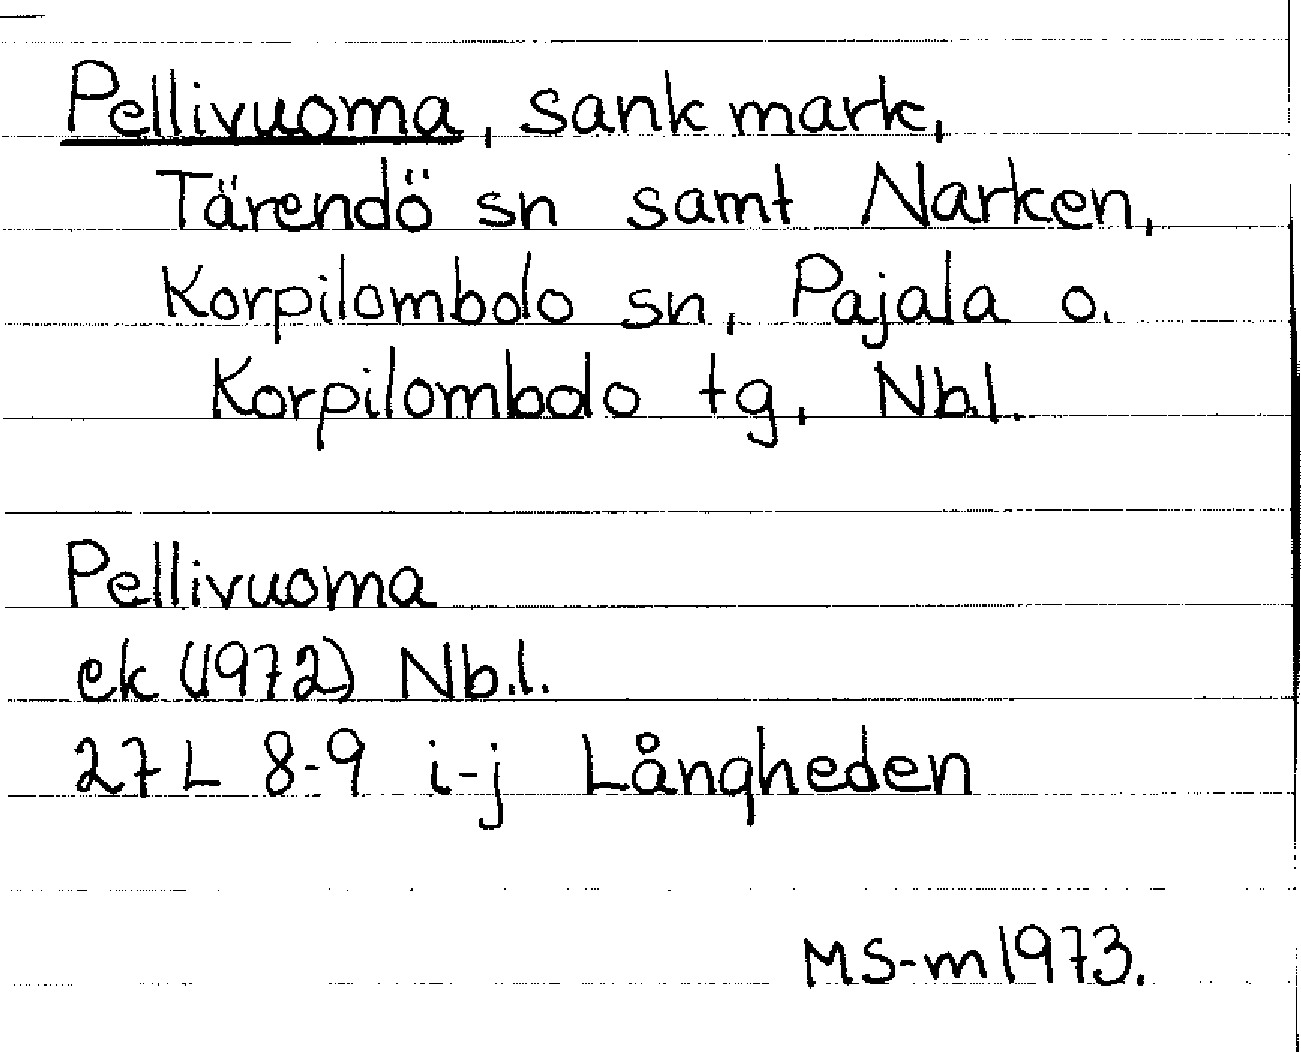 Pellivuoma, sank mark,
Tärendö sn samt Narken,
Korpilombolo sn, Pajala o.
Korpilombolo tg, Nb.l.
Pellivuoma
ek (1972) Nb.l.
27 L 8-9 i-j Långheden
MS-m 1973.